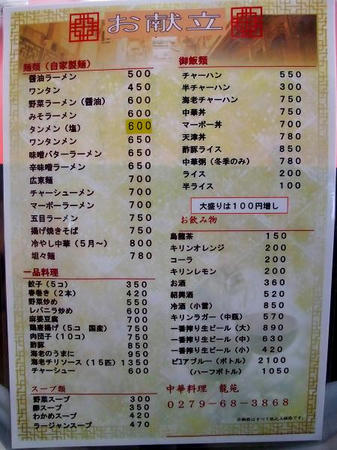 お献立
麺類（自家製麺）
醤油ラーメン 500
ワンタン 450
野菜ラーメン（醤油） 600
みそラーメン 600
タンメン（塩） 600
ワンタンメン 650
味噌バターラーメン 650
辛味噌ラーメン 650
広東麺 700
チャーシューメン 700
マーボーラーメン 700
五目ラーメン 750
揚げ焼きそば 750
冷やし中華（５月〜） 800
坦々麺 780
一品料理
餃子（５コ） 350
春巻き（２本） 420
野菜炒め 550
レバニラ炒め 600
麻婆豆腐 700
鶏唐揚げ（５コ 国産） 750
肉団子（１０コ） 750
酢豚 850
海老のうまに 950
海老チリソース（１５匹） 1350
チャーシュー 600
スープ類
野菜スープ 300
卵スープ 350
わかめスープ 420
ラージャンスープ 470
御飯類
チャーハン 550
半チャーハン 300
海老チャーハン 750
中華丼 750
マーボー丼 700
天津丼 780
酢豚ライス 850
中華粥（冬季のみ） 780
ライス 200
半ライス 100
大盛りは１００円増し
お飲み物
烏龍茶 150
キリンオレンジ 200
コーラ 200
キリンレモン 200
お酒 360
紹興酒 520
冷酒（小雪） 850
キリンラガー（中瓶） 570
一番搾り生ビール（大） 890
一番搾り生ビール（中） 630
一番搾り生ビール（小） 420
ピュアブルー（ボトル） 2100
（ハーフボトル） 1050
中華料理 龍苑
0279-68-3868